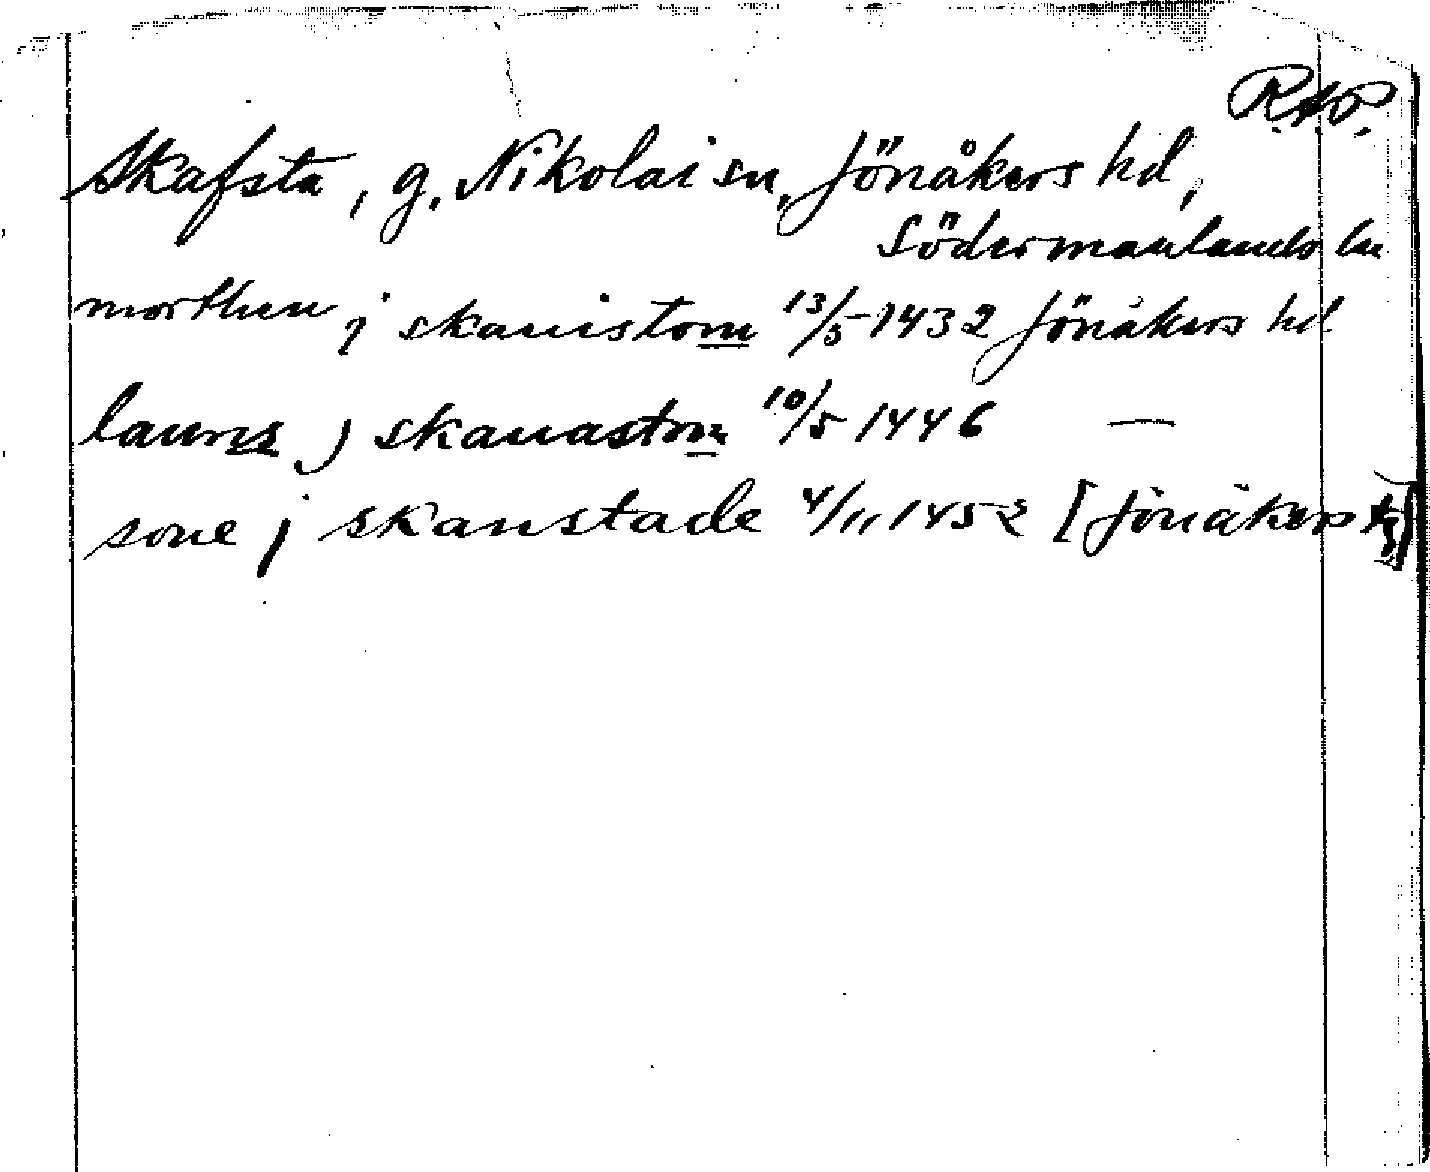 R.A.P.
Skafsta, g. Nikolai sn, Jönåkers hd,
Södermanlands ln
morthen j skauistom 13/5 1432 Jönåkers hd
laurns j skauastom 10/5 1446 —
sone j skanstade 4/11 1452 [Jönåkers